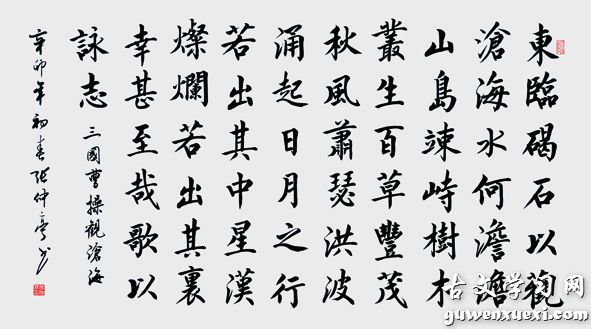 東臨碣石以觀
滄海水何澹澹
山島竦峙樹木
叢生百草豐茂
秋風蕭瑟洪波
涌起日月之行
若出其中星漢
燦爛若出其裏
幸甚至哉歌以
詠志 三國曹操觀滄海
辛卯年初春张仲亭书
古文学习网
guwenxuexi.com